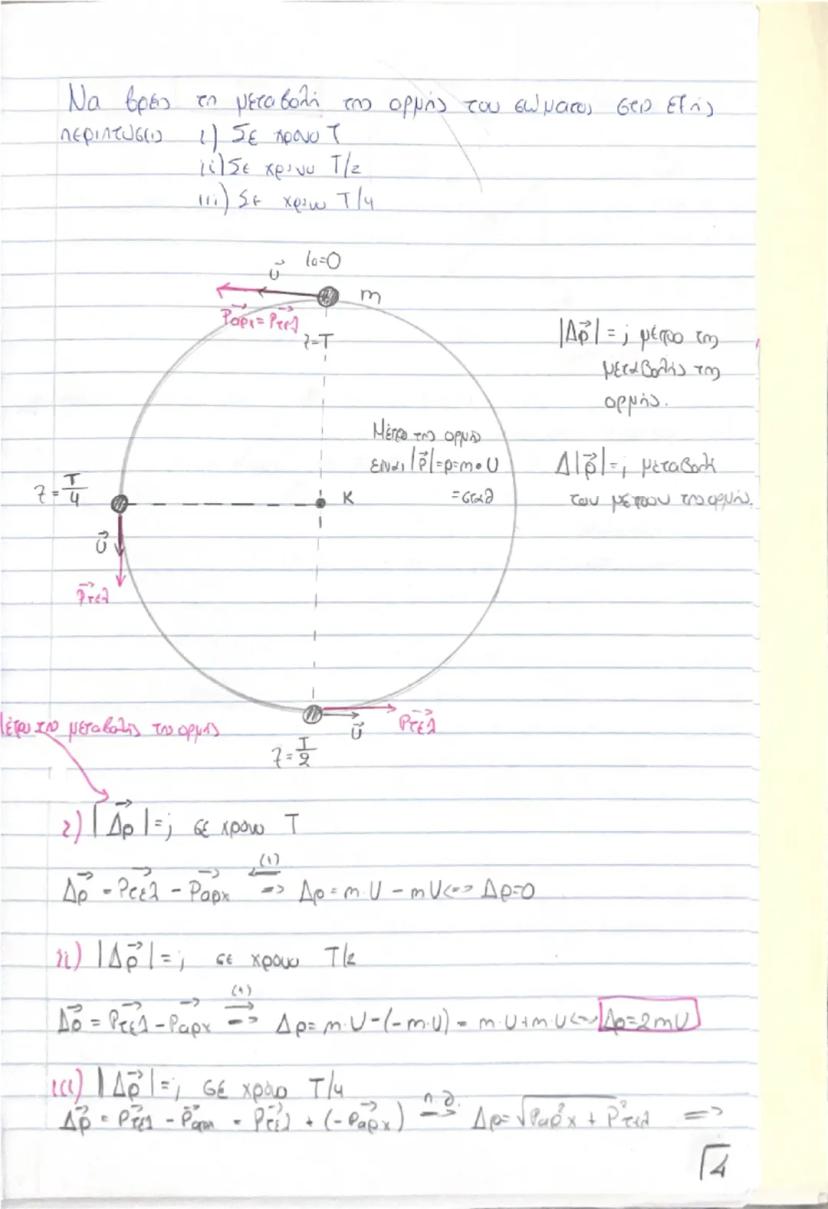 Να βρεις τη μεταβολή της ορμής του σώματος στις εξής
περιπτώσεις i) Σε χρόνο T
ii) Σε χρόνο T/2
iii) Σε χρόνο T/4
t₀=0
υ⃗
m
P⃗αρχ = P⃗τελ
t=T
|Δp⃗| = ; μέτρο της
μεταβολής της
ορμής.
Μέτρο της ορμής
είναι |p⃗|=p=m·υ
=σταθ
Δ|p⃗|=; μεταβολή
του μέτρου της ορμής.
t=T/4
K
υ⃗
P⃗τελ
P⃗τελ
υ⃗
t=T/2
Μέτρο της μεταβολής της ορμής
i) |Δp⃗|=; σε χρόνο T
Δp⃗ = P⃗τελ - P⃗αρχ (1) => Δp=m·υ - mυ <=> Δp=0
ii) |Δp⃗|=; σε χρόνο T/2
Δp⃗ = P⃗τελ - P⃗αρχ (1) => Δp= m·υ-(-m·υ) = m·υ+m·υ <=> Δp=2mυ
iii) |Δp⃗|=; σε χρόνο T/4
Δp⃗ = P⃗τελ - P⃗αρχ = P⃗τελ + (-P⃗αρχ) π.θ. => Δp=√(P²αρχ + P²τελ) =>
4